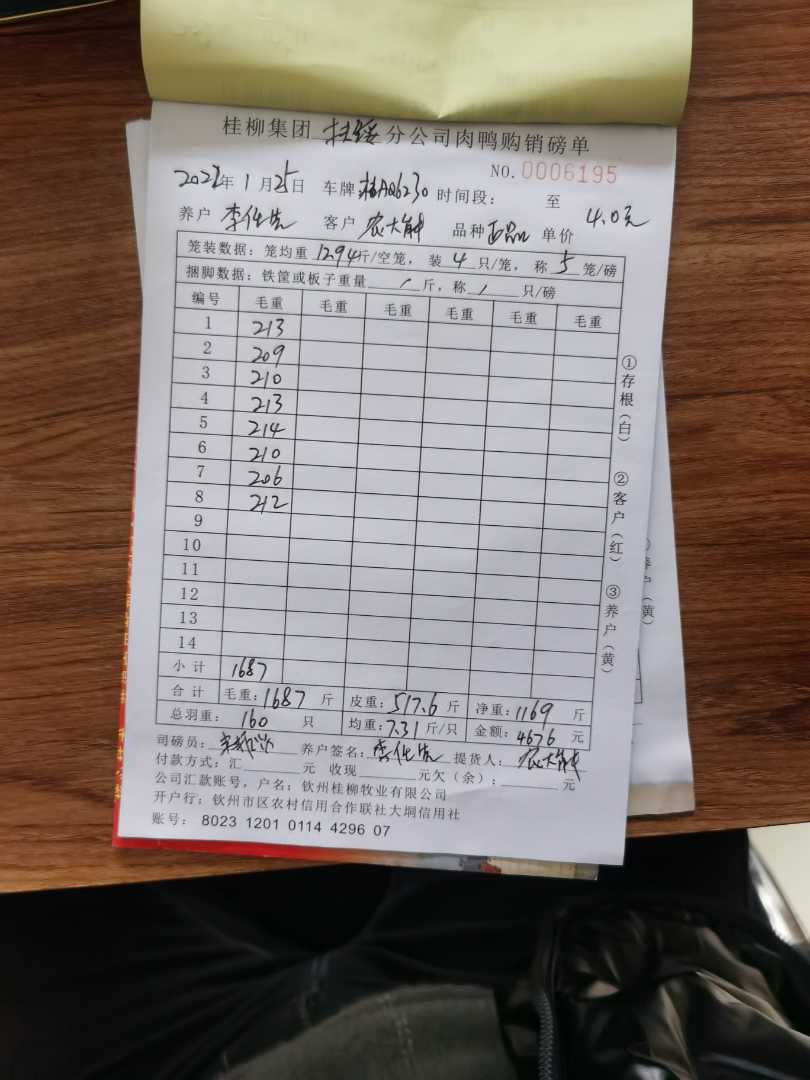 桂柳集团 扶绥 分公司肉鸭购销磅单
NO. 0006195
2022年 1 月 25 日 车牌 桂AQ6230 时间段： 至
养户 李仕先 客户 农大能 品种 正品 单价 4.0元
笼装数据：笼均重 12.94 斤/空笼，装 4 只/笼，称 5 笼/磅
捆脚数据：铁筐或板子重量 / 斤，称 / 只/磅
编号 毛重 毛重 毛重 毛重 毛重 毛重
1 213
2 209
3 210
4 213
5 214
6 210
7 206
8 212
9
10
11
12
13
14
小计 1687
合计 毛重：1687 斤 皮重：517.6 斤 净重：1169 斤
总羽重： 160 只 均重：7.31 斤/只 金额：4676 元
司磅员： 养户签名：李仕先 提货人： 农大能
付款方式：汇 元 收现 元欠（余）： 元
公司汇款账号，户名：钦州桂柳牧业有限公司
开户行：钦州市区农村信用合作联社大垌信用社
账号： 8023 1201 0114 4296 07
①存根（白）
②客户（红）
③养户（黄）